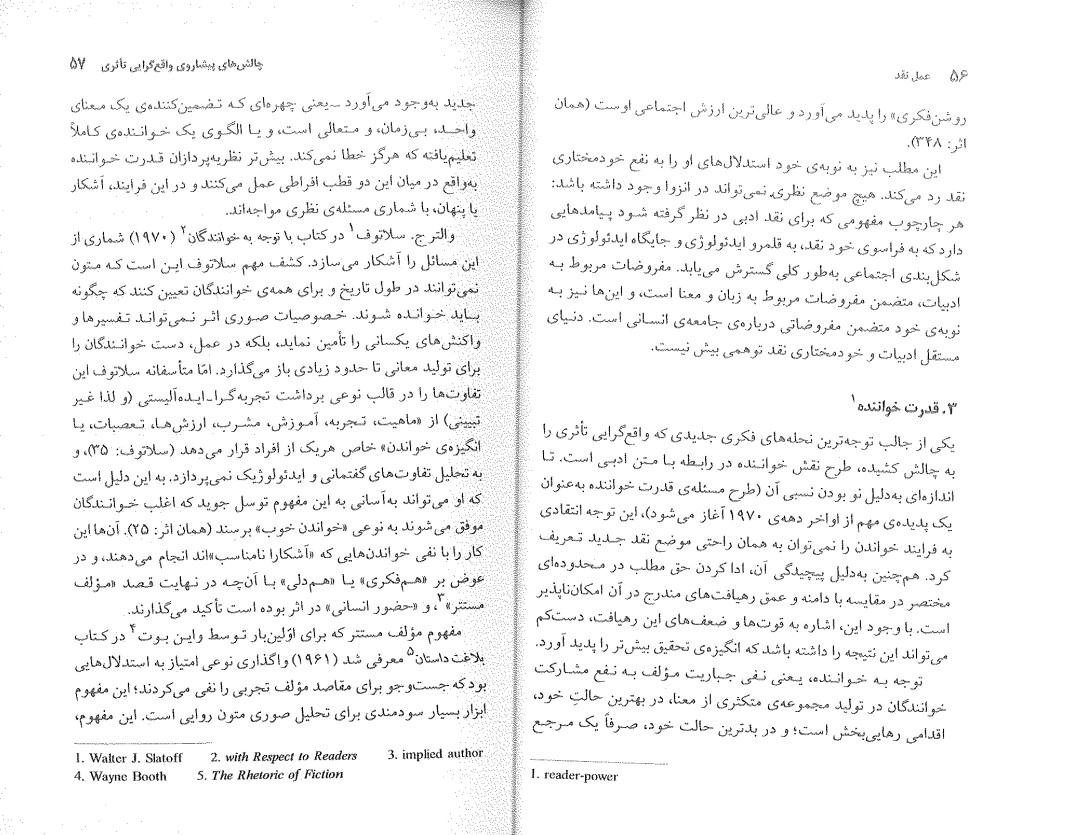 ۵۶ عمل نقد
روشن‌فکری» را پدید می‌آورد و عالی‌ترین ارزش اجتماعی اوست (همان
اثر: ۳۴۸).
این مطلب نیز به نوبه‌ی خود استدلال‌های او را به نفع خودمختاری
نقد رد می‌کند. هیچ موضع نظری نمی‌تواند در انزوا وجود داشته باشد:
هر چارچوب مفهومی که برای نقد ادبی در نظر گرفته شود پیامدهایی
دارد که به فراسوی خود نقد، به قلمرو ایدئولوژی و جایگاه ایدئولوژی در
شکل‌بندی اجتماعی به‌طور کلی گسترش می‌یابد. مفروضات مربوط به
ادبیات، متضمن مفروضات مربوط به زبان و معنا است، و این‌ها نیز به
نوبه‌ی خود متضمن مفروضاتی درباره‌ی جامعه‌ی انسانی است. دنیای
مستقل ادبیات و خودمختاری نقد توهمی بیش نیست.
۳. قدرت خواننده۱
یکی از جالب توجه‌ترین نحله‌های فکری جدیدی که واقع‌گرایی تأثری را
به چالش کشیده، طرح نقش خواننده در رابطه با متن ادبی است. تا
اندازه‌ای به‌دلیل نو بودن نسبی آن (طرح مسئله‌ی قدرت خواننده به‌عنوان
یک پدیده‌ی مهم از اواخر دهه‌ی ۱۹۷۰ آغاز می‌شود)، این توجه انتقادی
به فرایند خواندن را نمی‌توان به همان راحتی موضع نقد جدید تعریف
کرد. هم‌چنین به‌دلیل پیچیدگی آن، ادا کردن حق مطلب در محدوده‌ای
مختصر در مقایسه با دامنه و عمق رهیافت‌های مندرج در آن امکان‌ناپذیر
است. با وجود این، اشاره به قوت‌ها و ضعف‌های این رهیافت، دست‌کم
می‌تواند این نتیجه را داشته باشد که انگیزه‌ی تحقیق بیش‌تر را پدید آورد.
توجه به خواننده، یعنی نفی جباریت مؤلف به نفع مشارکت
خوانندگان در تولید مجموعه‌ی متکثری از معنا، در بهترین حالتِ خود،
اقدامی رهایی‌بخش است؛ و در بدترین حالت خود، صرفاً یک مرجع
1. reader-power
چالش‌های پیشاروی واقع‌گرایی تأثری ۵۷
جدید به‌وجود می‌آورد –یعنی چهره‌ای که تضمین‌کننده‌ی یک معنای
واحد، بی‌زمان، و متعالی است، و یا الگوی یک خواننده‌ی کاملاً
تعلیم‌یافته که هرگز خطا نمی‌کند. بیش‌تر نظریه‌پردازان قدرت خواننده
به‌واقع در میان این دو قطب افراطی عمل می‌کنند و در این فرایند، آشکار
یا پنهان، با شماری مسئله‌ی نظری مواجه‌اند.
والتر ج. سلاتوف۱ در کتاب با توجه به خوانندگان۲ (۱۹۷۰) شماری از
این مسائل را آشکار می‌سازد. کشف مهم سلاتوف این است که متون
نمی‌توانند در طول تاریخ و برای همه‌ی خوانندگان تعیین کنند که چگونه
باید خوانده شوند. خصوصیات صوری اثر نمی‌تواند تفسیرها و
واکنش‌های یکسانی را تأمین نماید، بلکه در عمل، دست خوانندگان را
برای تولید معانی تا حدود زیادی باز می‌گذارد. امّا متأسفانه سلاتوف این
تفاوت‌ها را در قالب نوعی برداشت تجربه‌گرا–ایده‌آلیستی (و لذا غیر
تبیینی) از «ماهیت، تجربه، آموزش، مشرب، ارزش‌ها، تعصبات، یا
انگیزه‌ی خواندن» خاص هریک از افراد قرار می‌دهد (سلاتوف: ۳۵)، و
به تحلیل تفاوت‌های گفتمانی و ایدئولوژیک نمی‌پردازد. به این دلیل است
که او می‌تواند به‌آسانی به این مفهوم توسل جوید که اغلب خوانندگان
موفق می‌شوند به نوعی «خواندن خوب» برسند (همان اثر: ۲۵). آن‌ها این
کار را با نفی خواندن‌هایی که «آشکارا نامناسب»‌اند انجام می‌دهند، و در
عوض بر «هم‌فکری» یا «هم‌دلی» با آن‌چه در نهایت قصد «مؤلف
مستتر»۳، و «حضور انسانی» در اثر بوده است تأکید می‌گذارند.
مفهوم مؤلف مستتر که برای اوّلین‌بار توسط واین بوت۴ در کتاب
بلاغت داستان۵ معرفی شد (۱۹۶۱) واگذاری نوعی امتیاز به استدلال‌هایی
بود که جست‌وجو برای مقاصد مؤلف تجربی را نفی می‌کردند؛ این مفهوم
ابزار بسیار سودمندی برای تحلیل صوری متون روایی است. این مفهوم،
1. Walter J. Slatoff 2. with Respect to Readers 3. implied author
4. Wayne Booth 5. The Rhetoric of Fiction